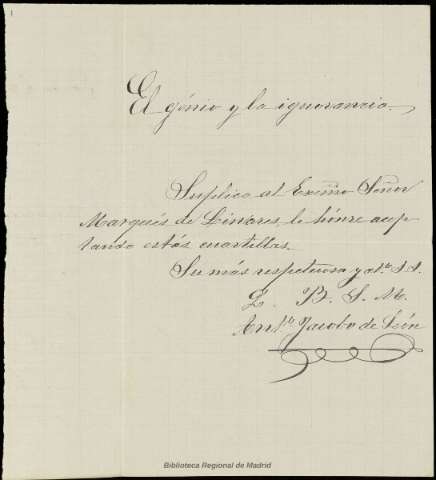 El génio y la ignorancia.
Suplico al Excmo Señor
Marqués de Linares, le hónre acep-
tando estás cuartillas.
Su más respetuoso y atto. S. S.
Q. B. S. M.
Anto. Jacobo de León
Biblioteca Regional de Madrid